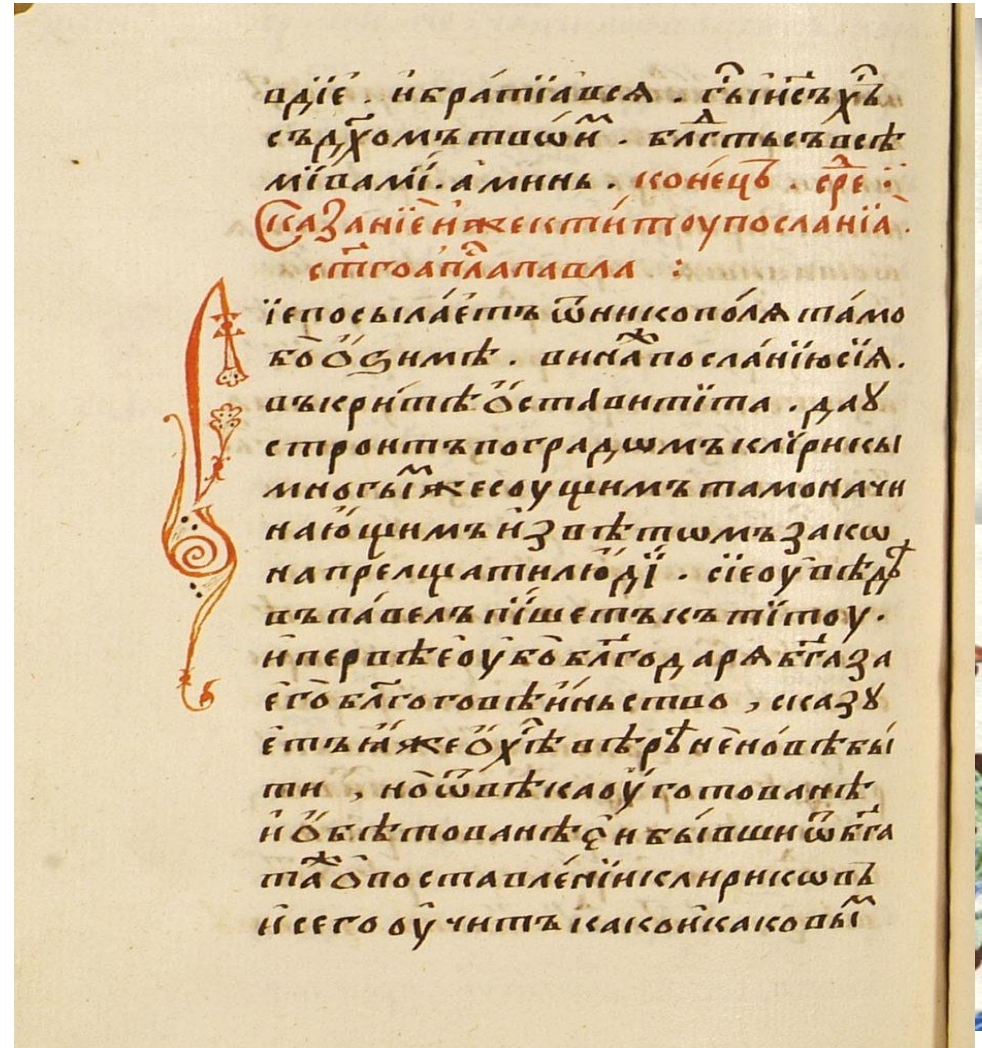 вдїе . и҆ бра́тїѧ всѧ . г҃ь і҆с҃ъ х҃ъ
съ дх҃омъ твои́м . бл҃гⷣть съ всѣ
мї вамї . а҆минь . коне́цъ . сре :
Сказанїе и҆же к ти́тоу посланїа .
ст҃го а҆пⷭ҇ла павла :
їе посыла́етъ ѿ никопо́лѧ та́мо
бо ѻ҆зимѣ . вина̀ посла́нїю сїѧ .
въ кри́тѣ ѻ҆стави тїта . да ᲂу
строитъ по градѡмъ клі́рикы
многы́м же соущимъ тамо начи
наю́щимъ и҆звѣтѡмъ зако
на прелщати лю́дї . сїе оу҆вѣд
въ па́велъ пі́шетъ къ ті́тоу .
и҆ первѣе оу҆бо бл҃годарѧ бг҃а за
его̀ бл҃гоговѣи́ньство , сказꙋ
етъ ꙗ҆́же ѻ҆ хⷭ҇ѣ вѣрꙋ не но́вѣ бы́
ти , но̀ ѿ вѣка оу҆готованѣ
и҆ ѻ҆бѣтованѣ е҆и бы́вши ѿ бг҃а
та́ж ѻ҆ поставле́нїи клирикѡвъ
и҆ сего оу҆читъ како и҆ каковы́м